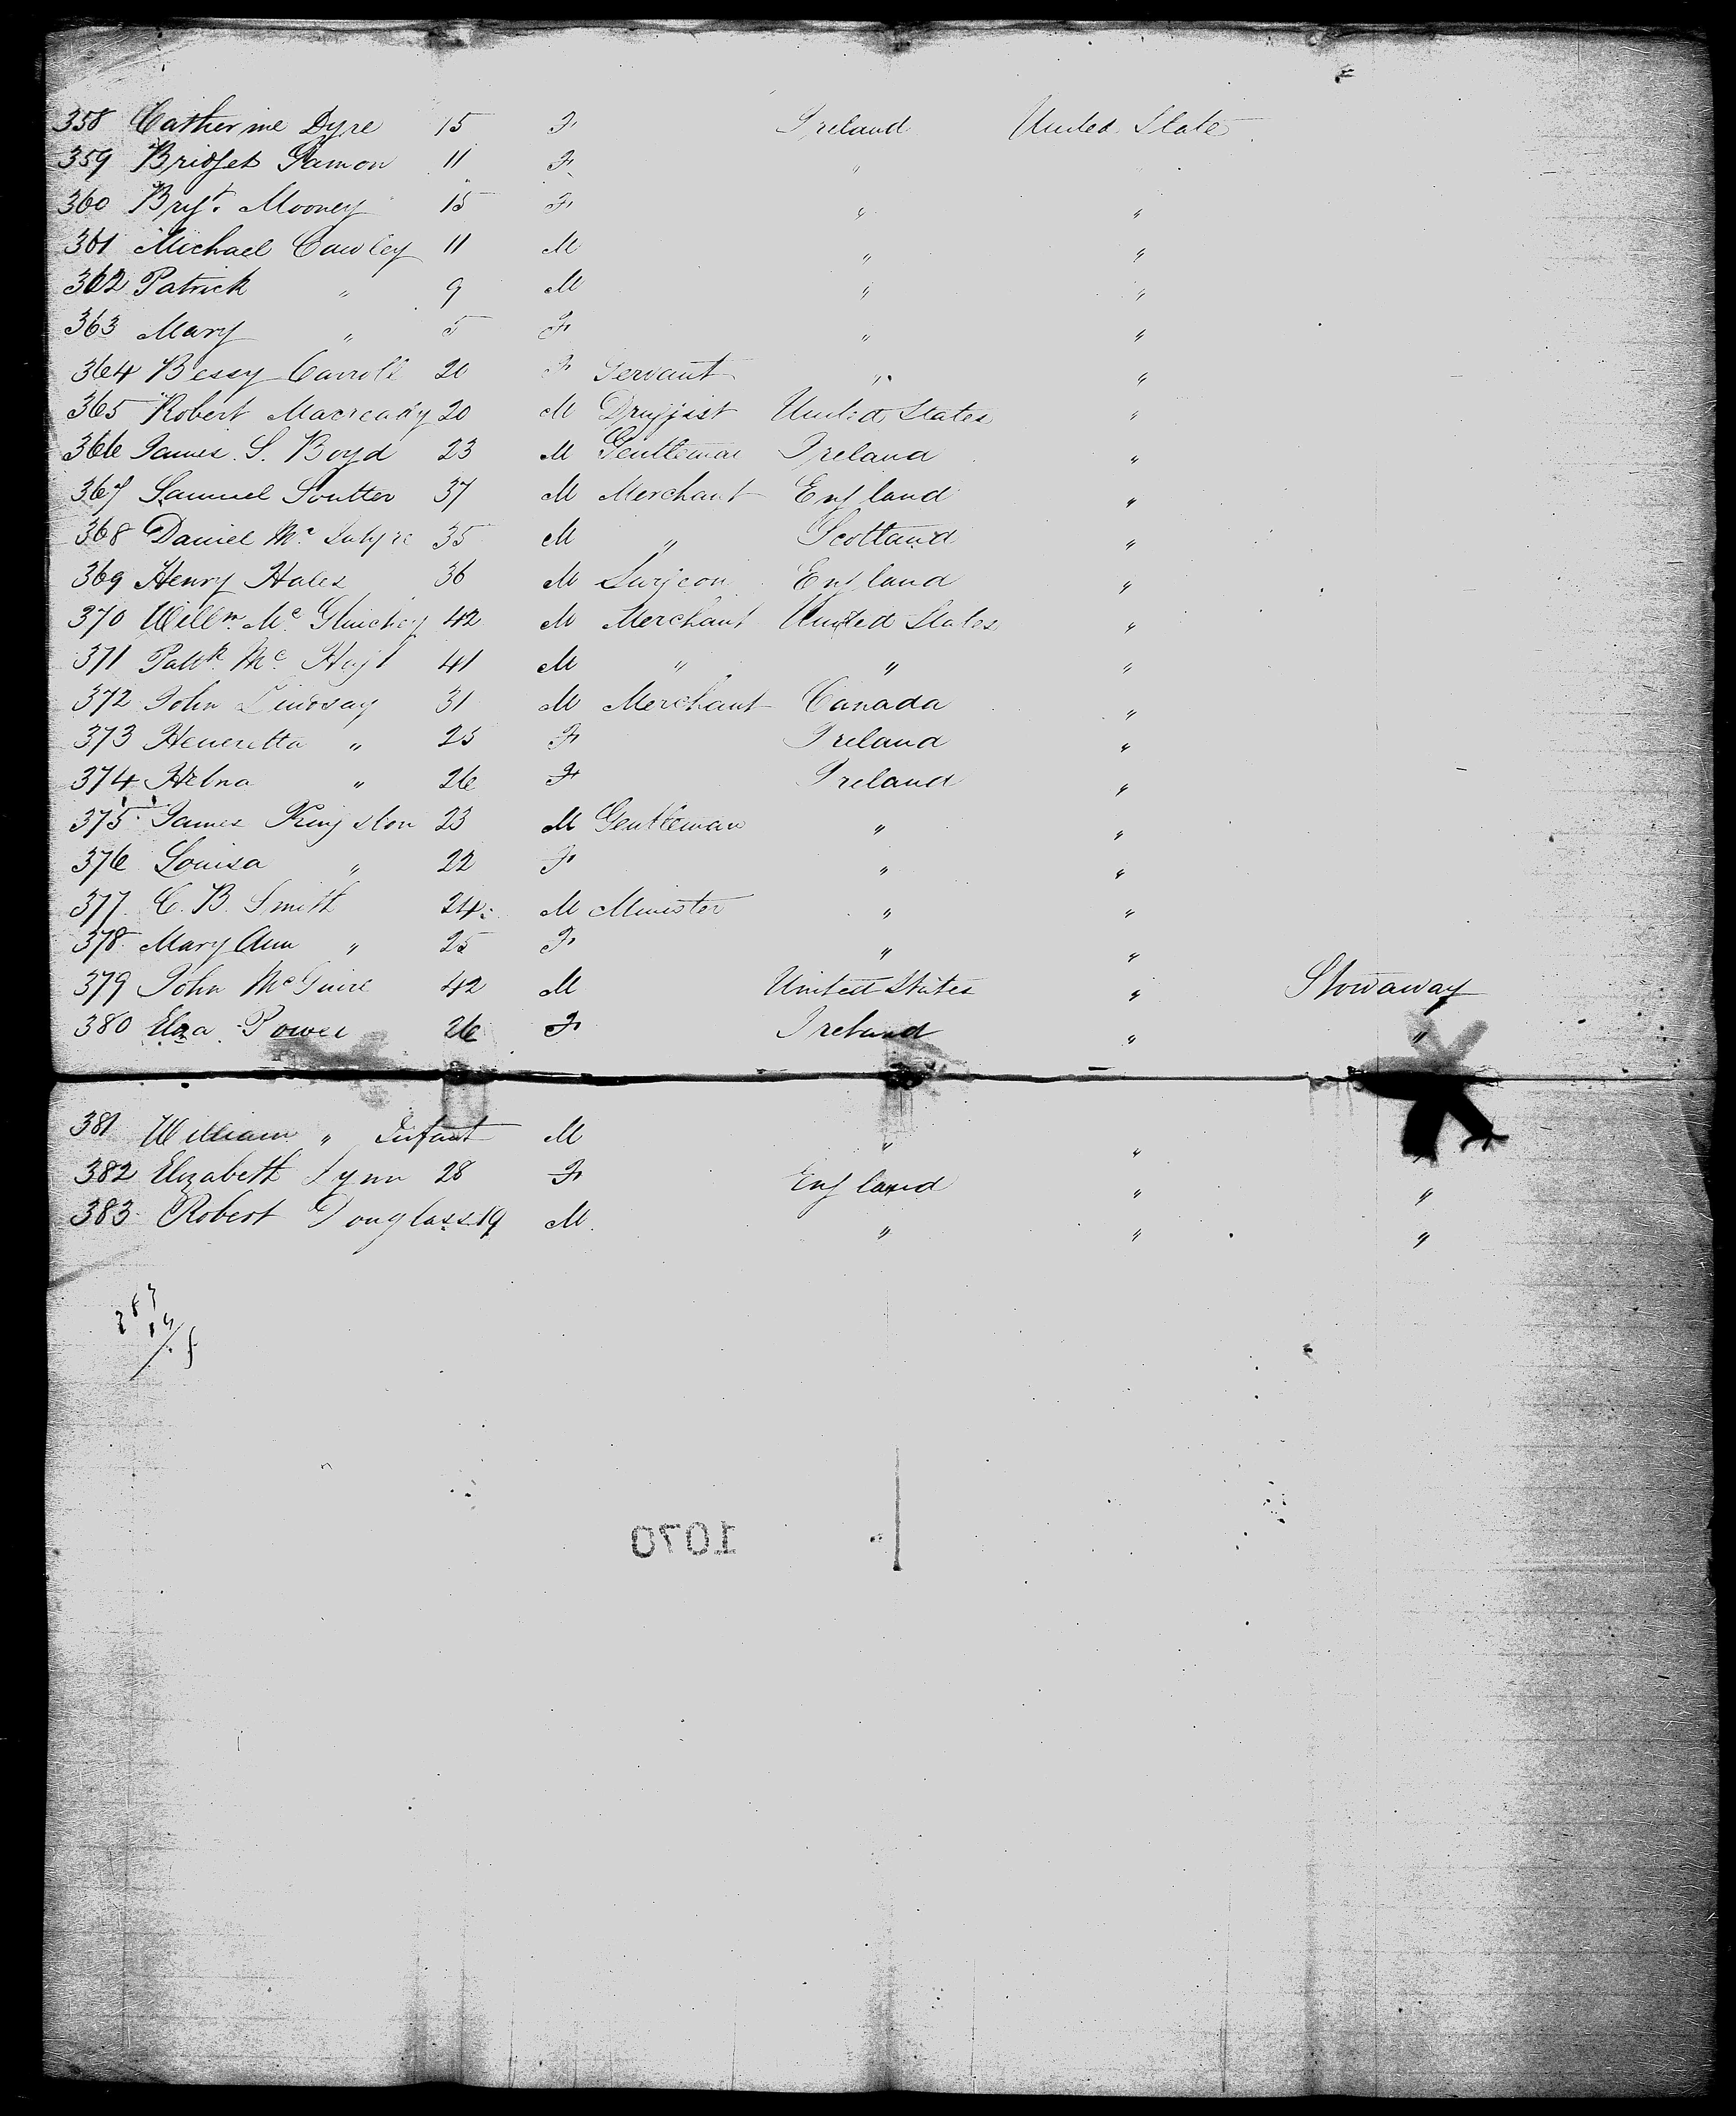 358 Catherine Dyre 15 F Ireland United State
359 Bridget Gamon 11 F "
360 Brygt. Mooney 15 F " "
361 Michael Cawley 11 M " "
362 Patrick " 9 M " "
363 Mary " 5 F " "
364 Bessy Carroll 20 F Servant " "
365 Robert Macready 20 M Druggist United States "
366 James S. Boyd 23 M Gentleman Ireland "
367 Samuel Soutter 37 M Merchant England "
368 Daniel Mc Intyre 35 M " Scotland "
369 Henry Hales 36 M Surgeon England "
370 Willm. Mc Glinchey 42 M Merchant United States "
371 Patk. Mc 41 M " " "
372 John Lindsay 31 M Merchant Canada "
373 Heneretta " 25 F Ireland "
374 Helna " 26 F Ireland "
375 James Kingston 23 M Gentleman " "
376 Louisa " 22 F " "
377 C. B. Smith 24 M Minister " "
378 Mary Ann " 25 F " "
379 John McGuire 42 M United States " Stowaway
380 Eliza Power 26 F Ireland " "
381 William " Infant M " "
382 Elizabeth Lynn 28 F England " "
383 Robert Douglass 19 M " " "
1070